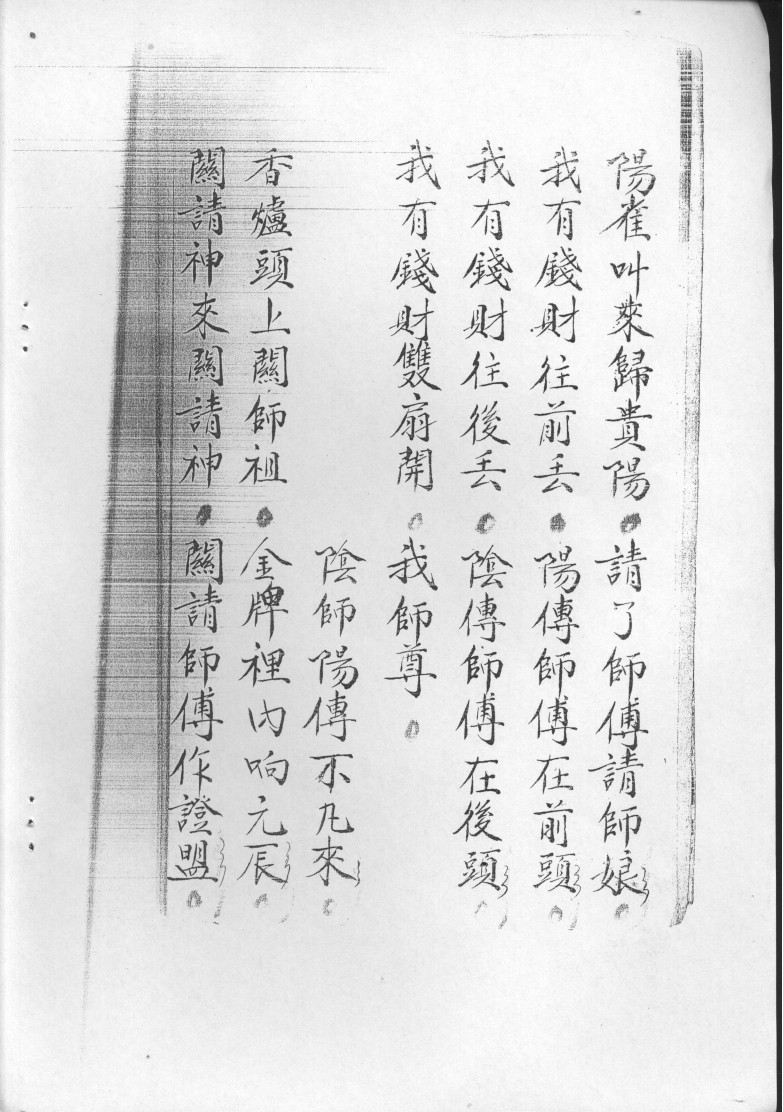 陽雀叫來歸貴陽。請了師傅請師娘
我有錢財往前丟。陽傳師傅在前頭
我有錢財往後丟。陰傳師傅在後頭
我有錢財雙扇開。我師尊。
陰師陽傳不凡來
香爐頭上關師祖。金牌裡内响元辰
關請神來關請神。關請師傅作證盟